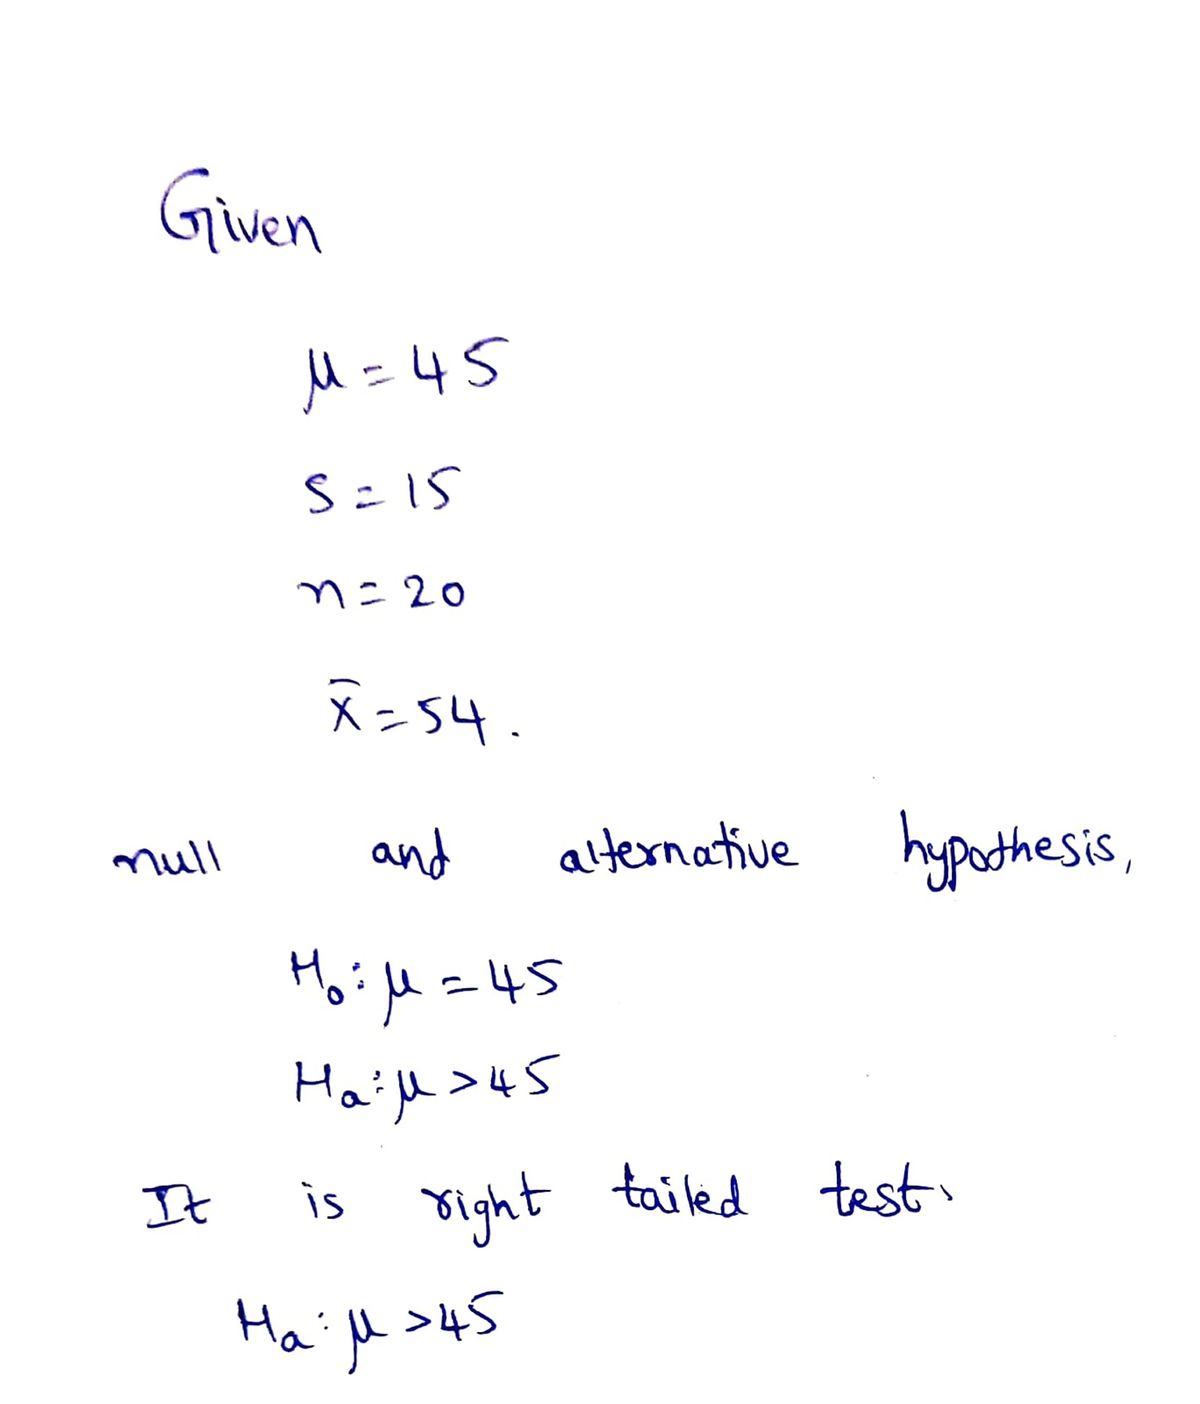 Given
μ = 45
S = 15
n = 20
x̄ = 54.
null and alternative hypothesis,
H₀: μ = 45
Hₐ: μ > 45
It is right tailed test.
Hₐ: μ > 45